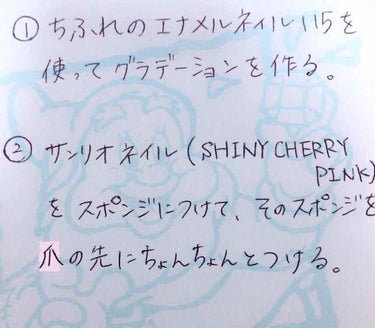 ① ちふれのエナメルネイル115を
使ってグラデーションを作る。
② サンリオネイル(SHINY CHERRY
PINK)
をスポンジにつけて、そのスポンジを
爪の先にちょんちょんとつける。